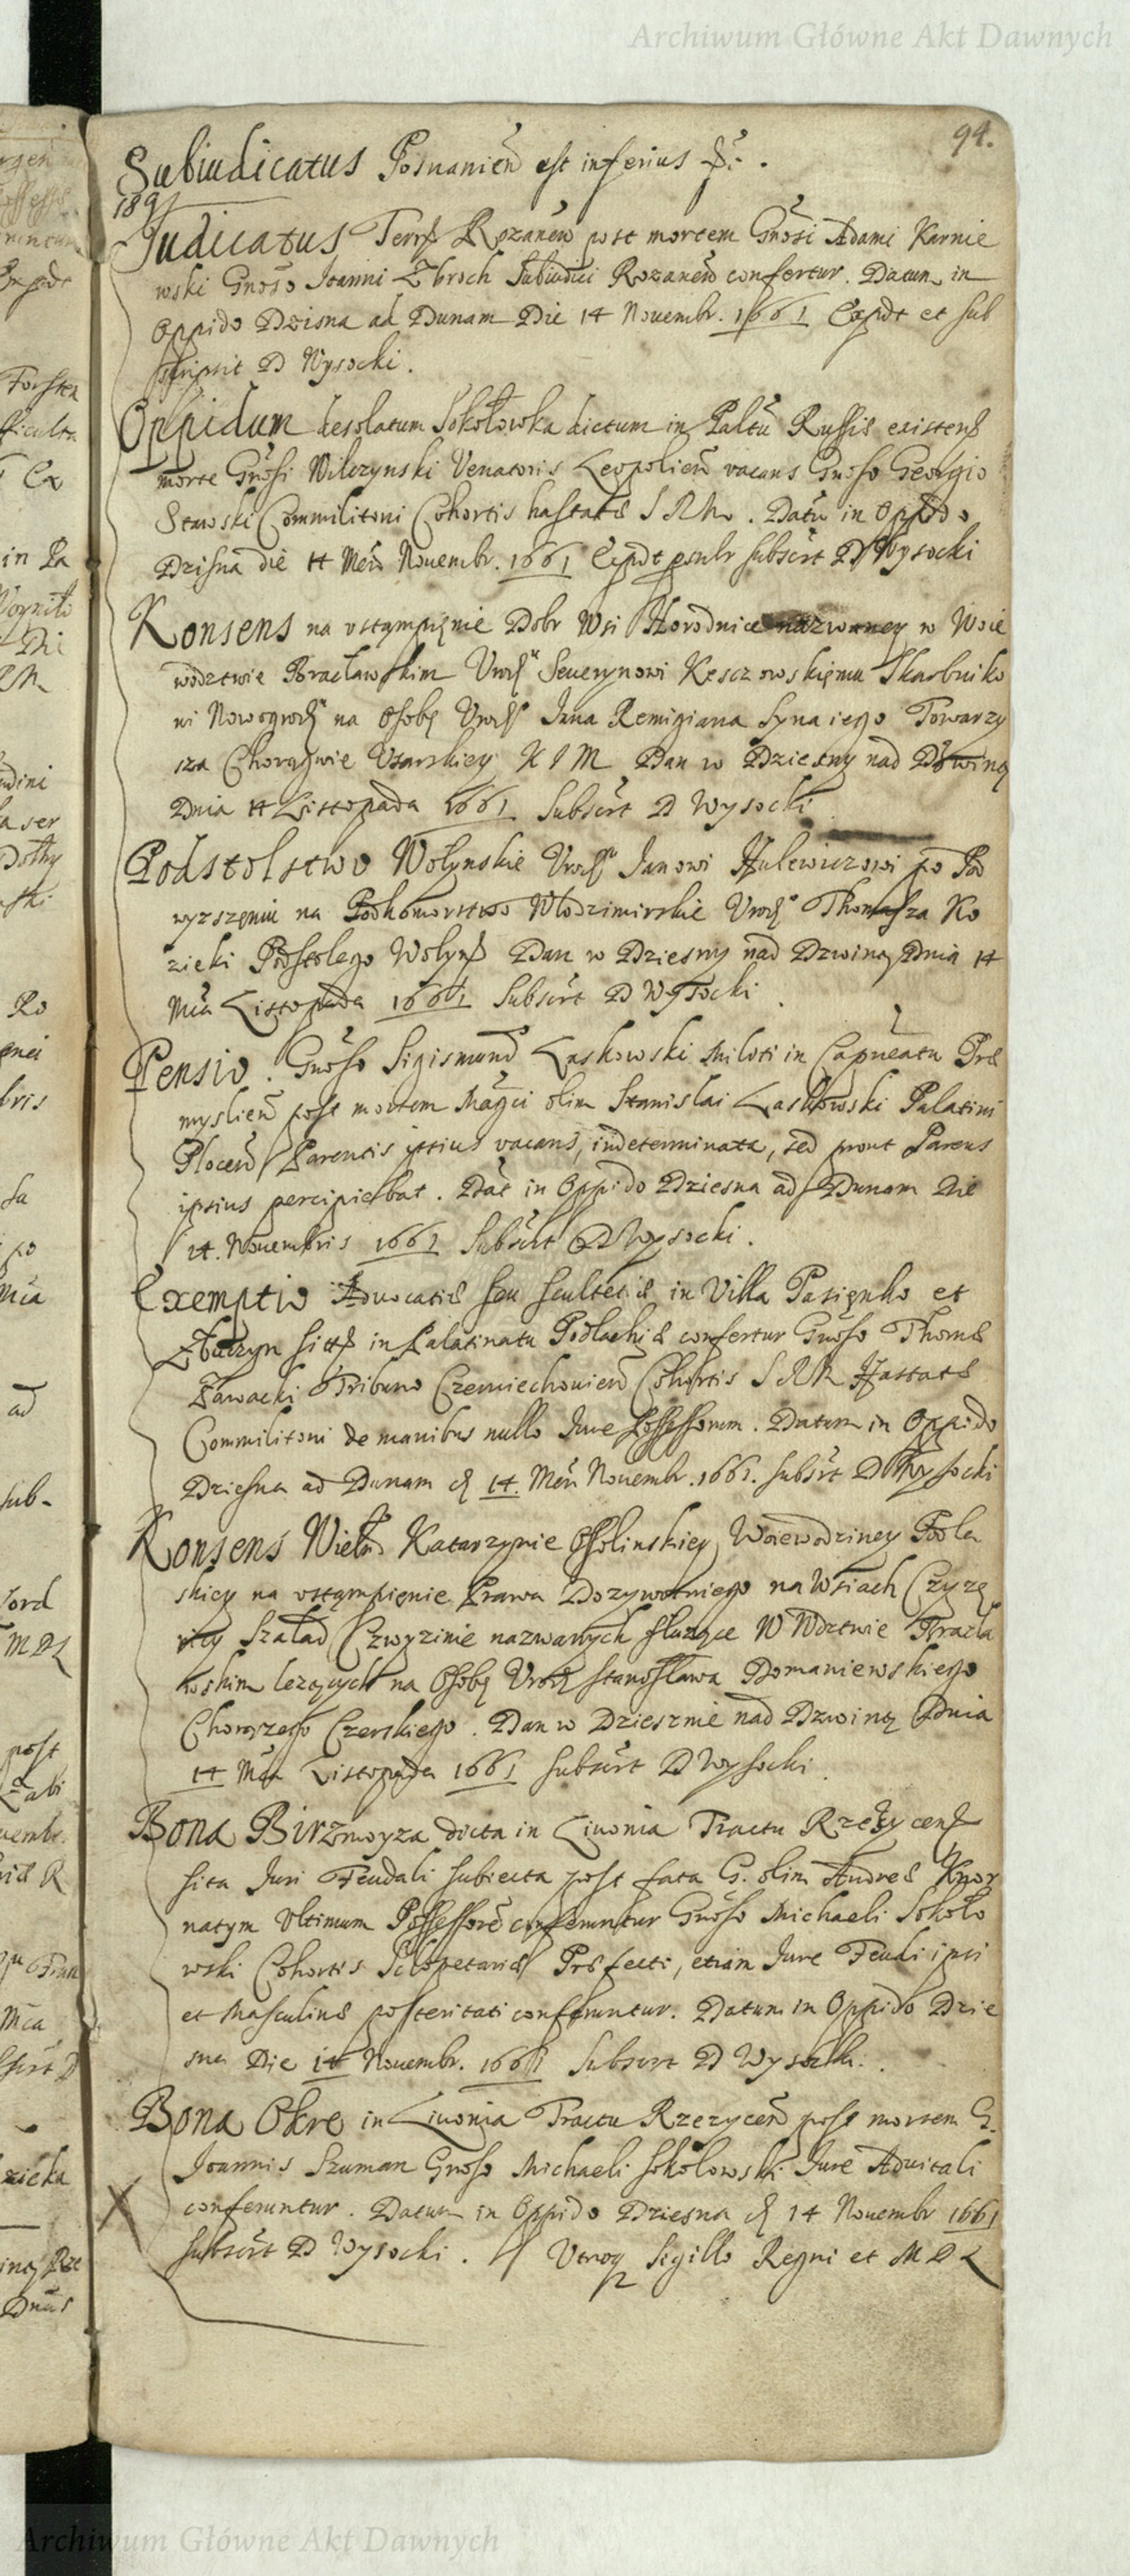 Archiwum Główne Akt Dawnych
94.
Subiudicatus Posnanień est inferius
189
Judicatus Terrß Rozaneń post mortem Gnosi Adami Karnie
wski Gnoso Joanni Zbroch Subiudici Rozaneń confertur. Datum in
Oppido Dzisna ad Dunam Die 14 Nouembr. 1661 Expdt et sub
scripsit D Wysocki.
Oppidum desolatum Sokołowka dictum in Paltu Russiæ existens
morte Gnosi Wilczynski Venatoris Leopolień vacans Gnoso Georgio
Stawski Commilitoni Cohortis hastatæ S R M. Datu in Oppido
Dzisna die 14 Men Nouembr. 1661 Expdt psnbr subscrt D Wysocki
Konsens na vstąmpięnie Dobr Wsi Horodnice nazwaney w Woie
wodztwie Bracławskim Vrodz Seuerynowi Kesczowskięmu Skarbniko
wi Nowogrodz na Osobę Vrodz Jana Remigiana Syna iego Towarzy
sza Chorągwie Vsarskiey K J M Dan w Dziesny nad Dzwiną
Dnia 14 Listopada 1661 Subscrt D Wysocki
Podstolstwo Wołynskie Vrodz Janowi Hulewiczowi po Po
wyzszęniu na Podkomorstwo Włodzimirskie Vrodz Thomasza Ko
zieki Podstolego Wołynß Dan w Dziesny nad Dzwiną Dnia 14
Mca Listopada 1661 Subscrt D Wysocki
Pensio. Gnoso Sigismund Laskowski Militi in Capneatu Præ
myslień post mortem Magci olim Stanislai Laskowski Palatini
Ploceń Parentis ipsius vacans, indeterminata, sed prout Parens
ipsius percipiebat. Dat in Oppido Dziesna ad Dunam Die
14. Nouembris 1661 Subscrt D Wysocki.
Exemptio Aduocatiæ seu scultetiæ in Villa Pasięnko et
Zbuczyn sittß in Palatinatu Podlachiæ confertur Gnoso Thomæ
Zawacki Tribuno Czerniechouień Cohortis S R M Hastatæ
Commilitoni de manibus nullo Jure Possessorum. Datum in Oppido
Dziesna ad Dunam d 14. Men Nouembr. 1661. subscrt D Wysocki
Konsens Wielm Katarzynie Ossolinskiey Woiewodziney Podla
skiey na vstąmpięnie Prawa Dozywotniego na Wsiach Czyzę
Szalad Czwyzinie nazwanych słuzące W Wdztwie Bracła
wskim lezących na Osobę Vrodz Stanosława Domaniewskiego
Chorązego Czerskiego. Dan w Dziesznie nad Dzwiną Dnia
14 Mca Listopada 1661 subscrt D Wysocki
Bona Birzmoyza dicta in Liuonia Tractu Rzeżycenß
sita Juri Feudali subiecta post fata G. olim Andreæ Knor
natym vltimum Possessore conferuntur Gnoso Michaeli Sokoło
wski Cohortis Sclopetariæ Præfecti, etiam Jure Feudi ipsi
et Masculinæ posteritati conferuntur. Datum in Oppido Dzie
sna Die 14 Nouembr. 1661 Subscrt D Wysocki.
Bona Okre in Liuonia Tractu Rzezyceń post mortem G.
Joannis Szuman Gnoso Michaeli Sokolowski Jure Aduitali
conferuntur. Datum in Oppido Dziesna d 14 Nouembr 1661
subscrt D Wysocki. // Vtroq Sigillo Regni et M D L
Archiwum Główne Akt Dawnych